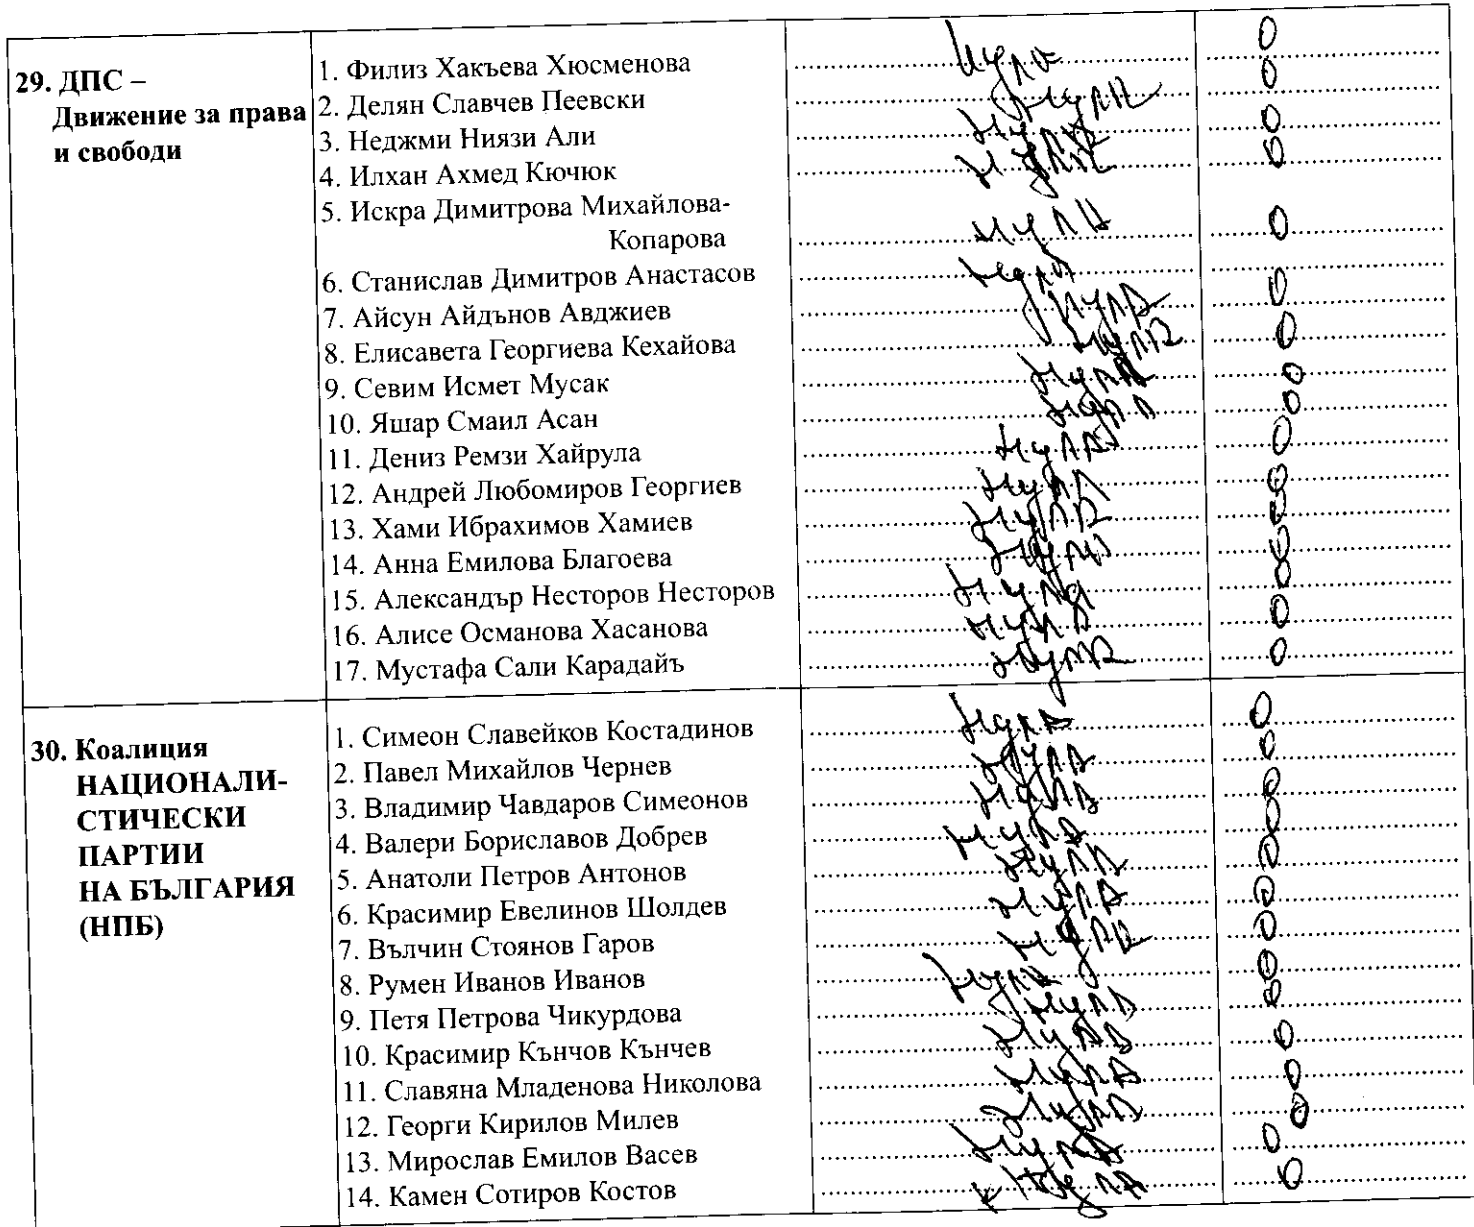 29. ДПС –
Движение за права
и свободи
1. Филиз Хакъева Хюсменова нула 0
2. Делян Славчев Пеевски нула 0
3. Неджми Ниязи Али нула 0
4. Илхан Ахмед Кючюк нула 0
5. Искра Димитрова Михайлова-
Копарова нула 0
6. Станислав Димитров Анастасов нула
7. Айсун Айдънов Авджиев нула 0
8. Елисавета Георгиева Кехайова нула 0
9. Севим Исмет Мусак нула 0
10. Яшар Смаил Асан нула 0
11. Дениз Ремзи Хайрула нула 0
12. Андрей Любомиров Георгиев нула 0
13. Хами Ибрахимов Хамиев нула 0
14. Анна Емилова Благоева нула 0
15. Александър Несторов Несторов нула 0
16. Алисе Османова Хасанова нула 0
17. Мустафа Сали Карадайъ нула 0
30. Коалиция
НАЦИОНАЛИ-
СТИЧЕСКИ
ПАРТИИ
НА БЪЛГАРИЯ
(НПБ)
1. Симеон Славейков Костадинов нула 0
2. Павел Михайлов Чернев нула 0
3. Владимир Чавдаров Симеонов нула 0
4. Валери Бориславов Добрев нула 0
5. Анатоли Петров Антонов нула 0
6. Красимир Евелинов Шолдев нула 0
7. Вълчин Стоянов Гаров нула 0
8. Румен Иванов Иванов нула 0
9. Петя Петрова Чикурдова нула 0
10. Красимир Кънчов Кънчев нула 0
11. Славяна Младенова Николова нула 0
12. Георги Кирилов Милев нула 0
13. Мирослав Емилов Васев нула 0
14. Камен Сотиров Костов нула 0